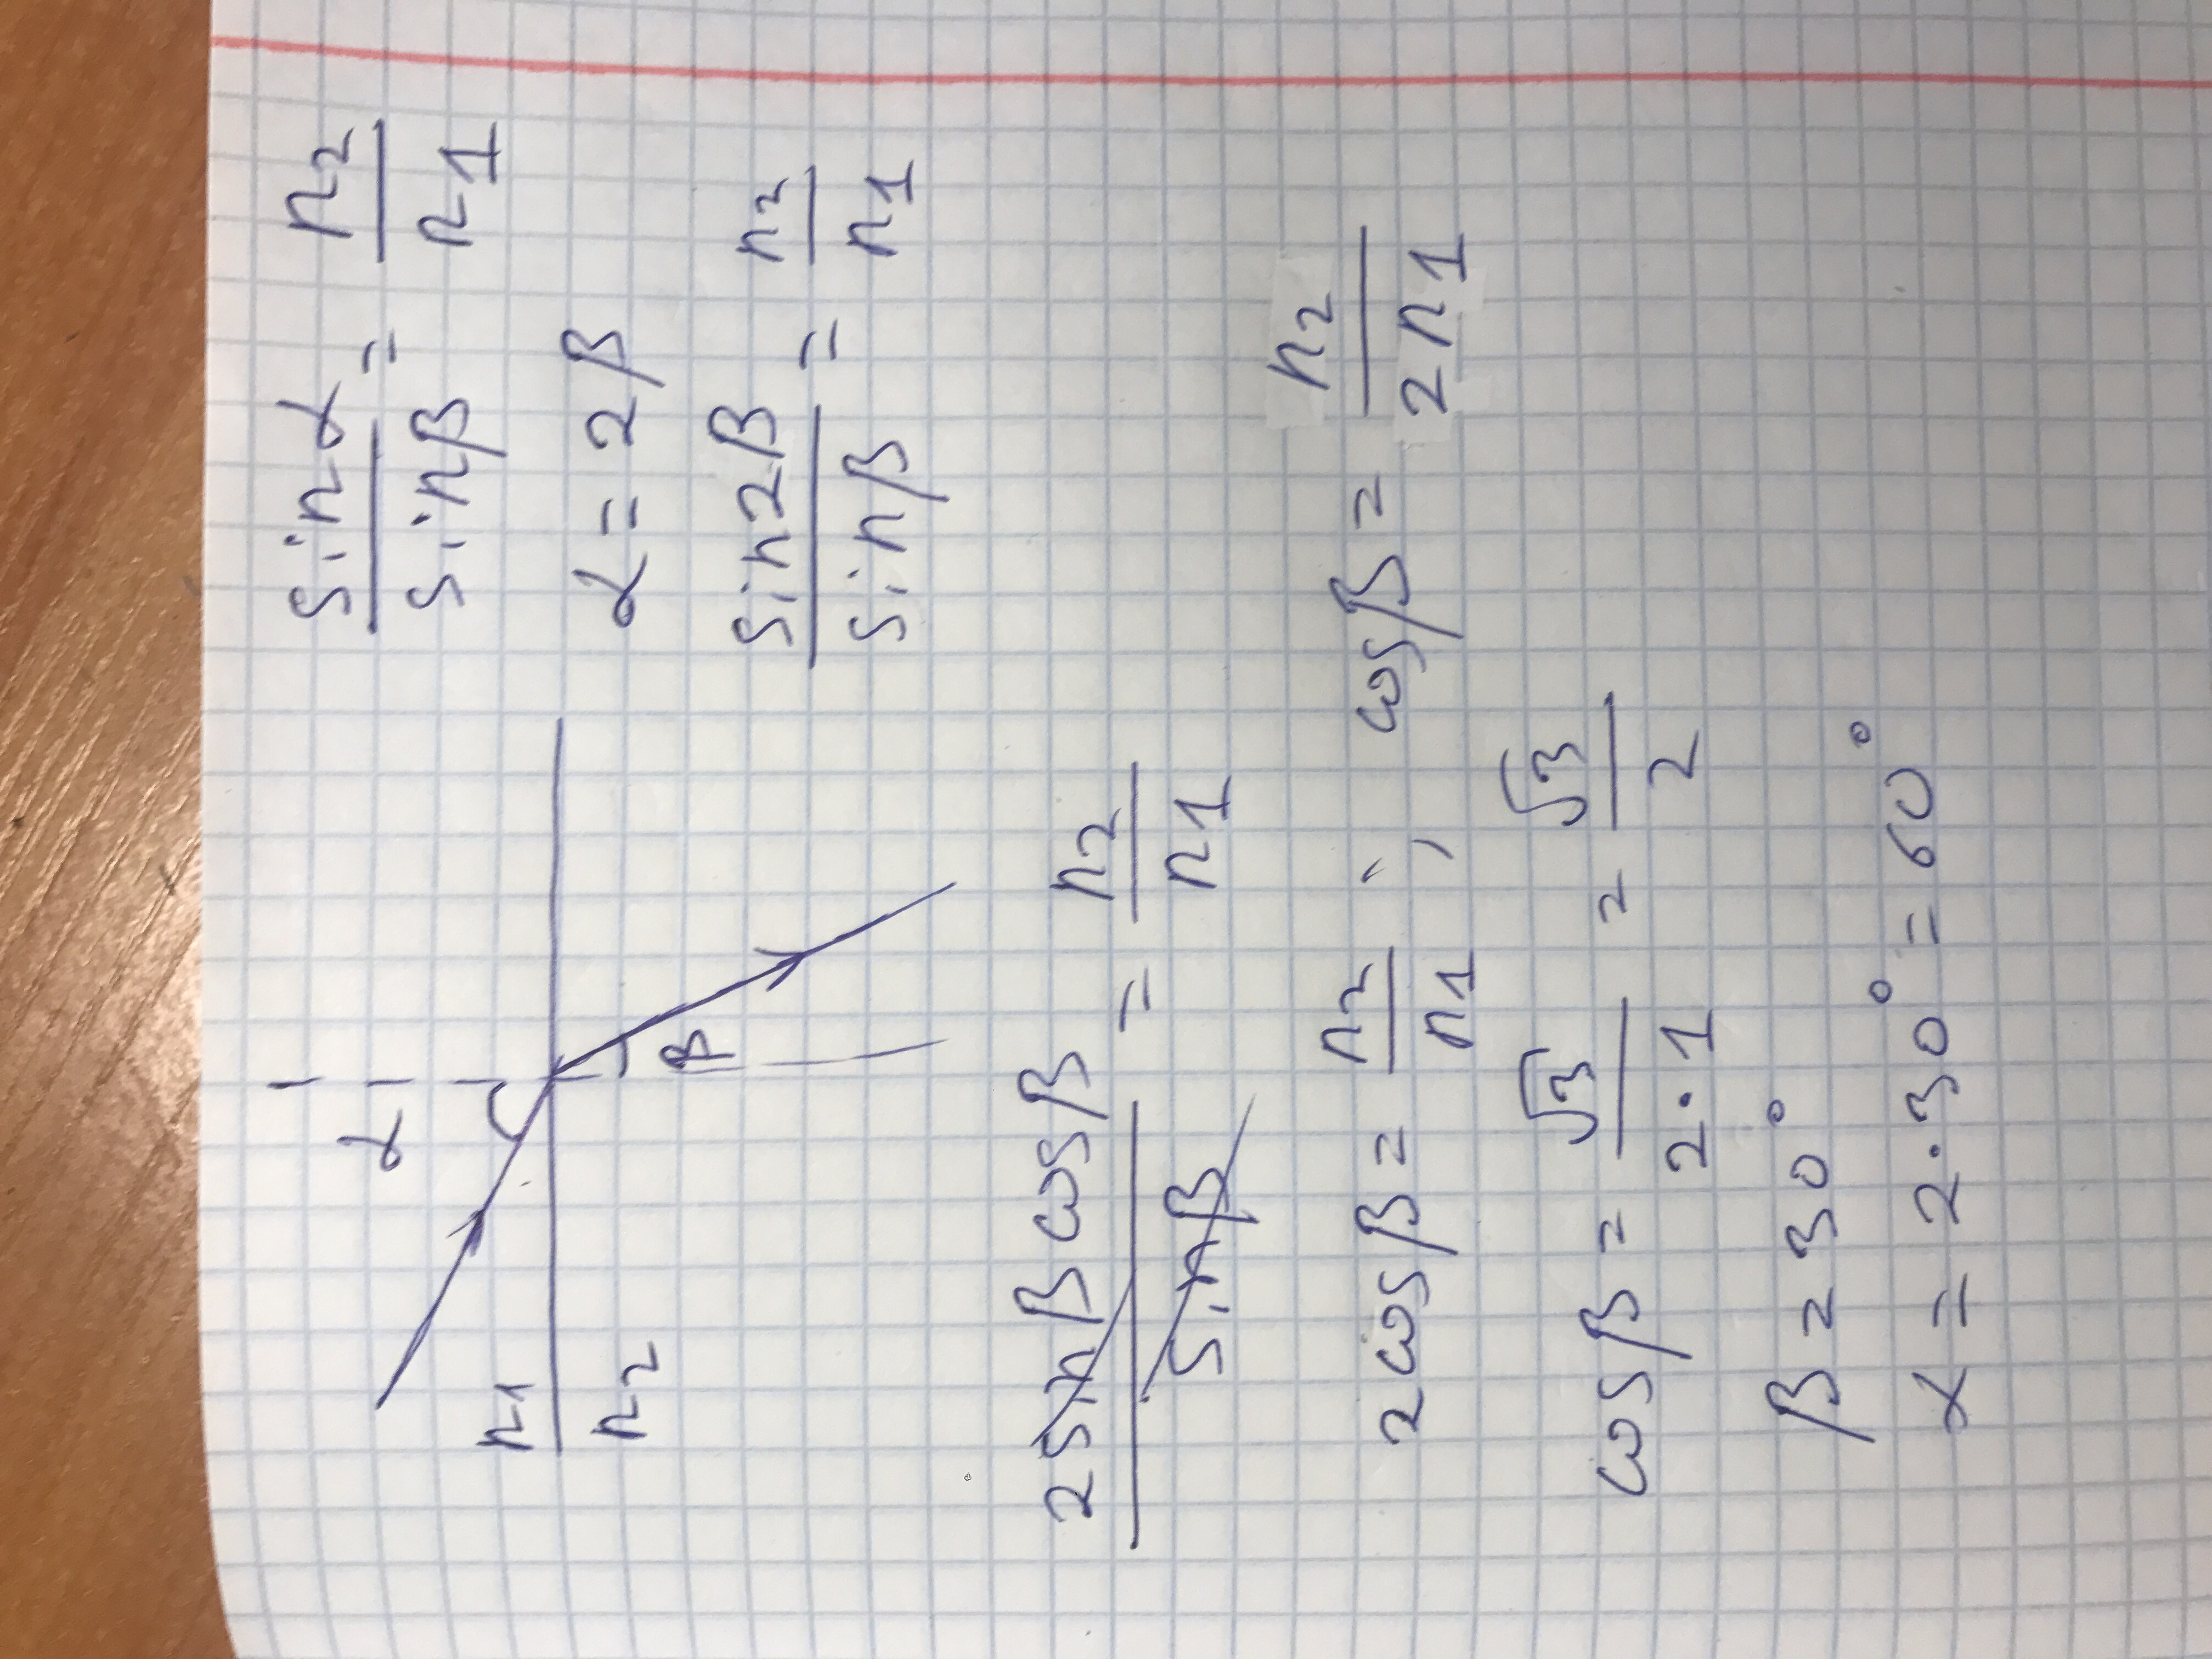 sinα/sinβ = n2/n1
α
n1
n2
β
α = 2β
sin2β/sinβ = n2/n1
2sinβcosβ/sinβ = n2/n1
2cosβ = n2/n1 ; cosβ = n2/2n1
cosβ = √3/2·1 = √3/2
β = 30°
α = 2·30° = 60°